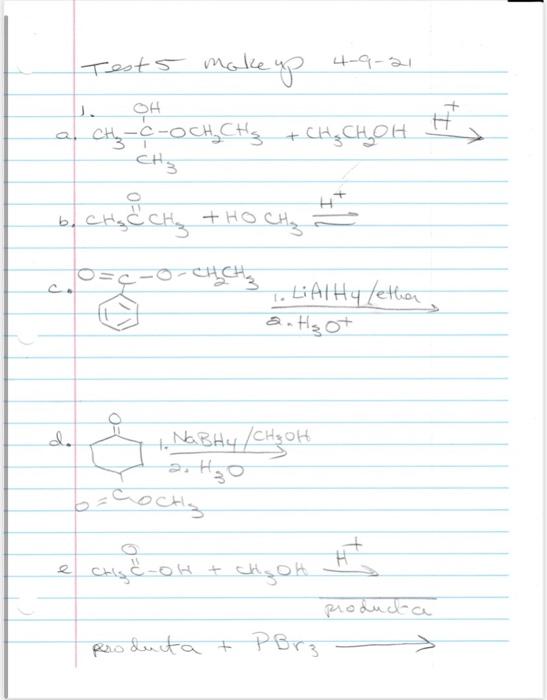 Test 5 makeup 4-9-21
1. OH
a. CH₃-C-OCH₂CH₃ + CH₃CH₂OH H⁺
CH₃
O
b. CH₃CCH₃ + HOCH₃ H⁺
c. O=C-O-CH₂CH₃
1. LiAlH4/ether
2. H₃O⁺
O
d. 1. NaBH4/CH₃OH
2. H₃O
O=COCH₃
O
e CH₃C-OH + CH₃OH H⁺
product a
product a + PBr₃